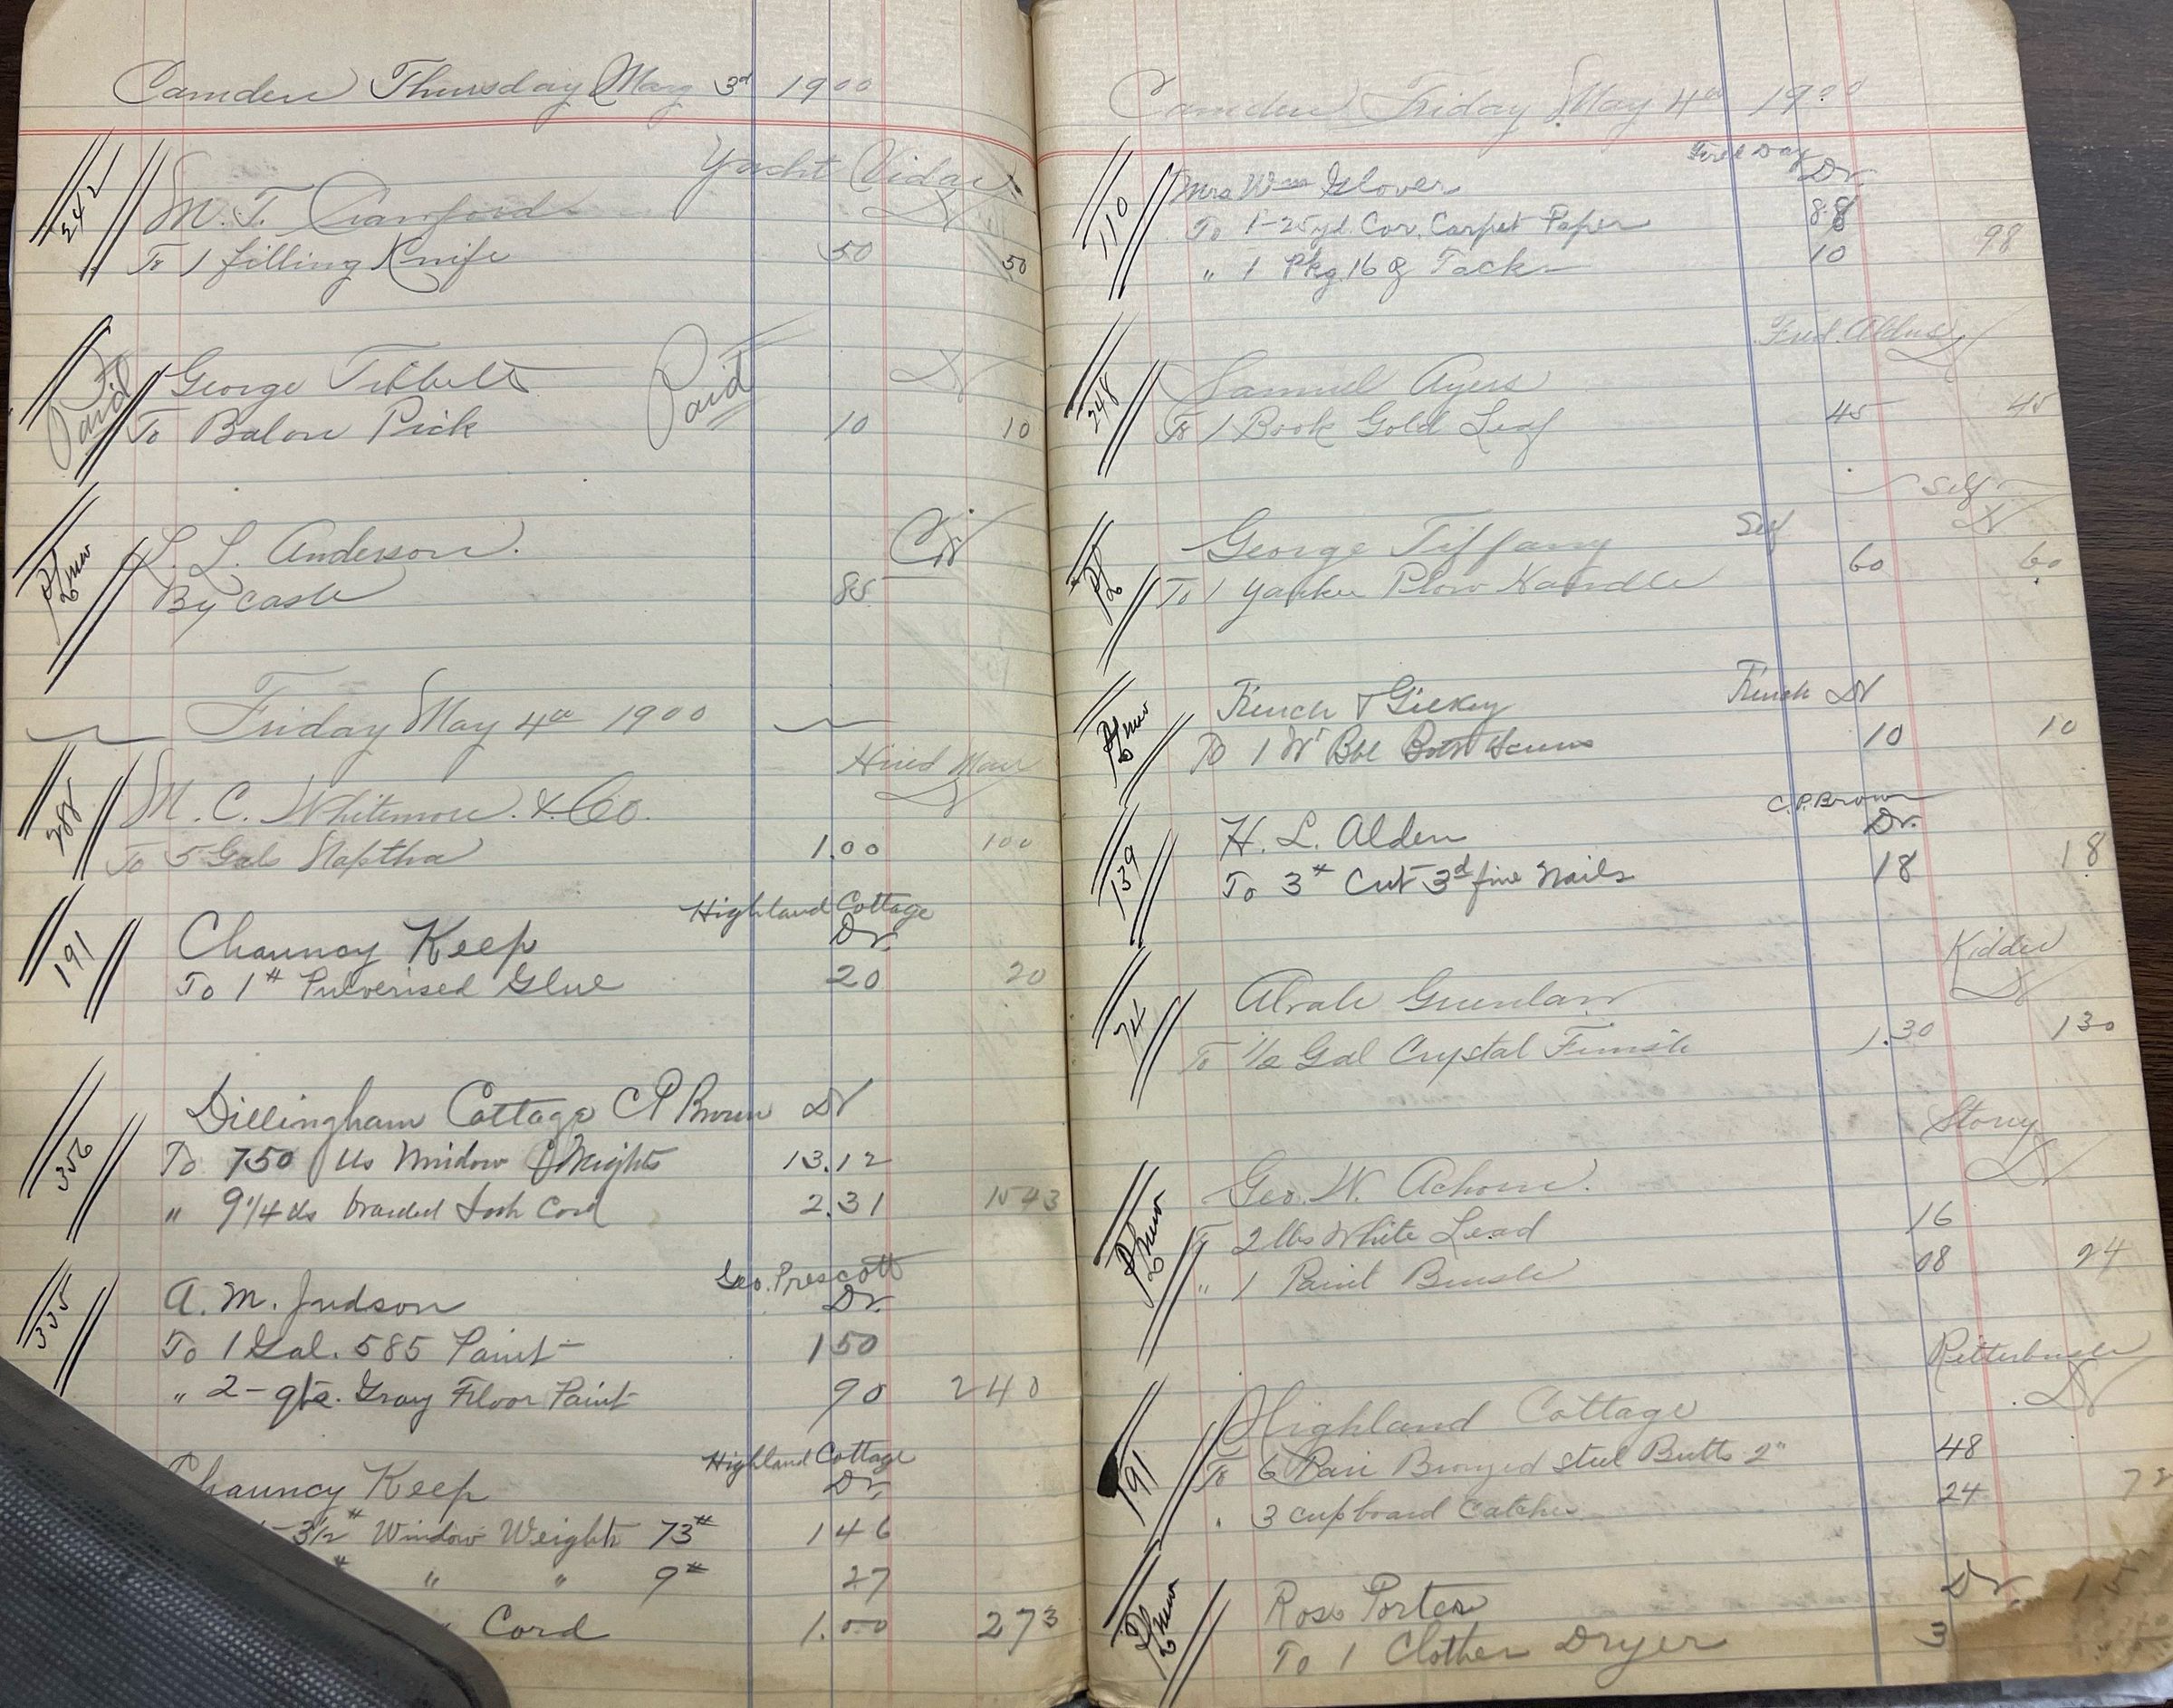 Camden Thursday May 3d 1900
Yacht Vidar
242
M. T. Crawford Dr
To 1 filling Knife 50 50
Paid
George Tibbetts Paid Dr
To Balon Pick 10 10
L. L. Anderson. Cr
By Cash 85
Friday May 4th 1900
Hired Man
288
M. C. Whitemore. & Co. Dr
To 5 Gals Naptha 1.00 100
Highland Cottage
191
Chauncy Keep Dr.
To 1# Pulverised Glue 20 20
356
Dillingham Cottage C P Brown Dr
To 750 lbs Window Weights 13.12
" 9 1/4 lbs braided Sash Cord 2.31 1543
Geo. Prescott
335
A. M. Judson Dr.
To 1 Gal. 585 Paint 150
" 2 - qts. Gray Floor Paint 90 240
Highland Cottage
Chauncy Keep Dr.
3 1/2# Window Weights 73# 146
# " " 9# 27
" Cord 1.00 273
Camden Friday May 4th 1900
Day
110
Mrs Wm Glover Dr.
To 1-25 yd. Cor. Carpet Paper 88
" 1 Pkg 16 oz Tacks 10 98
Fred. Aldus
248
Samuel Ayers Dr
To 1 Book Gold Leaf 45 45
Self
George Tiffany Self Dr
To 1 Yankee Plow Handle 60 60
French & Gilkey French Dr
To 1 10 10
C. P. Brown
139
H. L. Alden Dr.
To 3# Cut 3d fine Nails 18 18
Kidder
74
Alvah Greenlaw Dr
To 1/2 Gal Crystal Finish 1.30 130
Story
Geo. W. Achorn. Dr
To 2 lbs White Lead 16
" 1 Paint Brush 08 24
Ritterbush
191
Highland Cottage Dr
To 6 Pair Bronzed steel Butts 2" 48
" 3 cupboard Catches 24 72
Rose Porter Dr.
To 1 Clothes Dryer 3